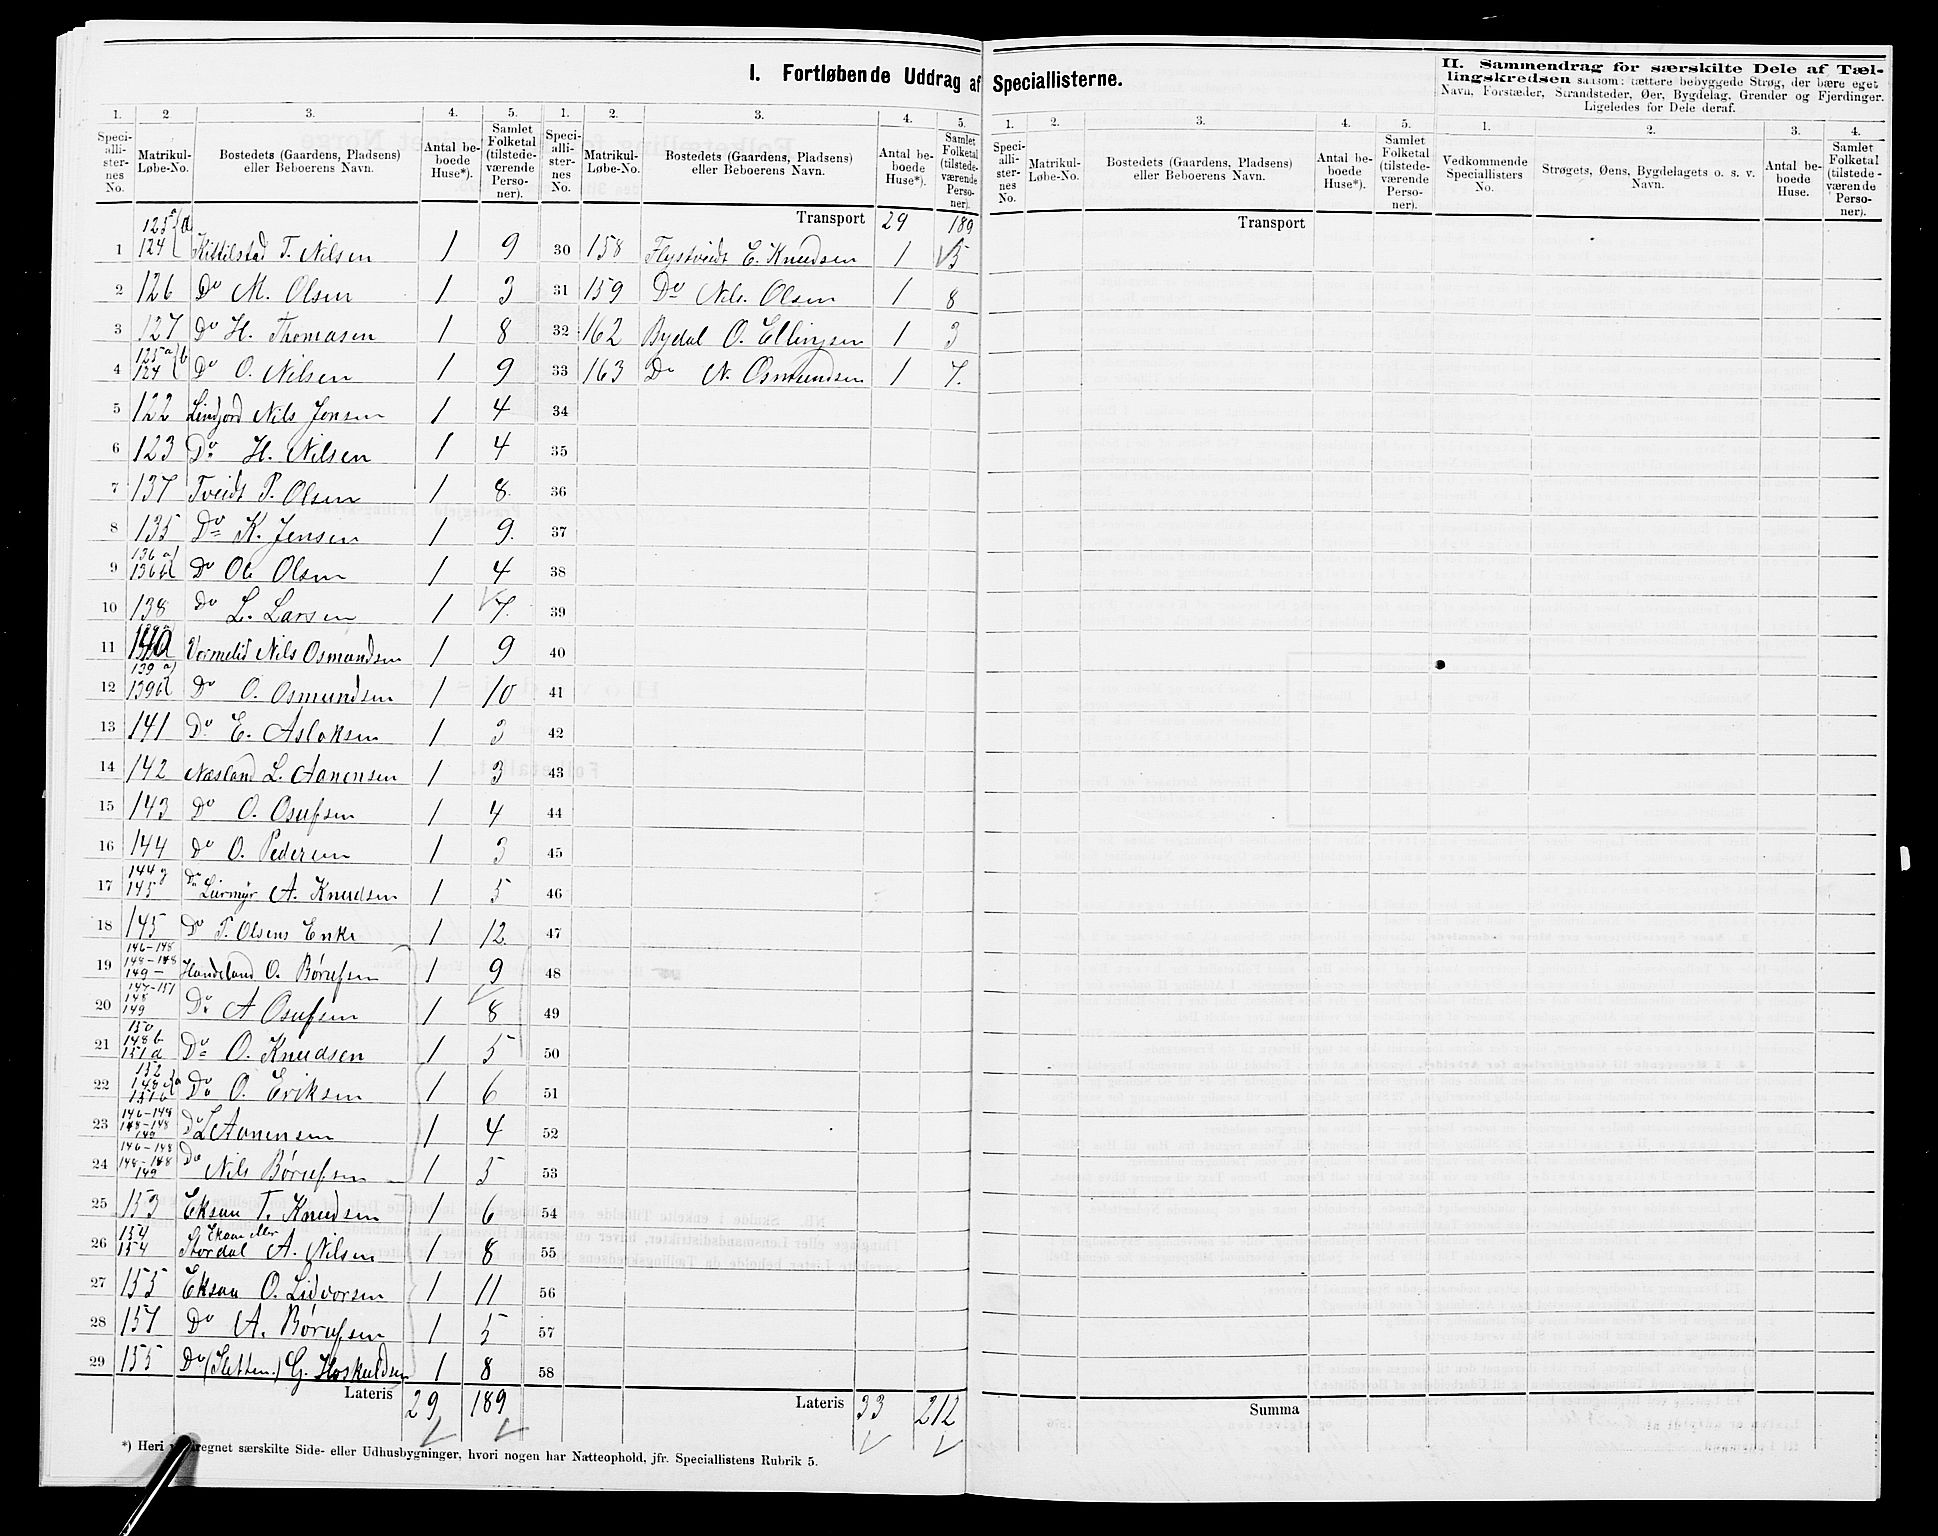 I. Fortløbende Uddrag af Speciallisterne.
II. Sammendrag for særskilte Dele af Tællingskredsen saasom: tættere bebyggede Strøg, der bære eget Navn, Forstæder, Strandsteder, Øer, Bygdelag, Grender og Fjerdinger. Ligeledes for Dele deraf.
1. 2. 3. 4. 5. 1. 2. 3. 4. 5. 1. 2. 3. 4. 5. 1. 2. 3. 4.
Speciallisternes No. Matrikul-Løbe-No. Bostedets (Gaardens, Pladsens) eller Beboerens Navn. Antal beboede Huse*). Samlet Folketal (tilstedeværende Personer).
Speciallisternes No. Matrikul-Løbe-No. Bostedets (Gaardens, Pladsens) eller Beboerens Navn. Antal beboede Huse*). Samlet Folketal (tilstedeværende Personer).
Speciallisternes No. Matrikul-Løbe-No. Bostedets (Gaardens, Pladsens) eller Beboerens Navn. Antal beboede Huse*). Samlet Folketal (tilstedeværende Personer).
Vedkommende Speciallisters No. Strøgets, Øens, Bygdelagets o. s. v. Navn. Antal beboede Huse. Samlet Folketal (tilstedeværende Personer).
1 125a 124 a Kittilstad T. Nilsen 1 9
2 126 Do M. Olsen 1 3
3 127 Do H. Thomasen 1 8
4 125a 124 b Do O. Nilsen 1 9
5 122 Lindjord Nils Jensen 1 4
6 123 Do H. Nilsen 1 4
7 137 Tveidt P. Olsen 1 8
8 135 Do K. Jensen 1 9.
9 136a 136b Do Ole Olsen 1 4
10 138 Do L. Larsen 1 7.
11 140 Vormelid Nils Osmundsen 1 9
12 139a 139b Do O. Osmundsen 1 10
13 141 Do E. Aslaksen 1 3
14 142 Næsland L. Aanensen 1 3
15 143 Do O. Osufsen 1 4
16 144 Do O. Pedersen 1 3
17 144 145 Do Leirmyr A. Knudsen 1 5
18 145 Do T. Olsens Enke 1 12.
19 146-148 148-148 149- Handeland O. Børufsen 1 9
20 147-151 148 149 Do A Osufsen 1 8
21 150 148b 151a Do O. Knudsen 1 5
22 152 148 151b Do O. Eriksen 1 6
23 146-148 148-148 149 Do L Aanensen 1 4
24 146-148 148-148 149 Do Nils Børufsen 1 5
25 153 Eksaa T. Knudsen 1 6
26 154 154 Eksaa eller Stordal A. Nilsen 1 8
27 155 Eksaa O. Lidvorsen 1 11
28 157 Do A. Børufsen 1 5
29 155 Do (Sletten) G. Hoskuldsen 1 8
Lateris 29 189
Transport 29 189
30 158 Flystveidt E. Knudsen 1 5
31 159 Do Nils Olsen 1 8
32 162 Bydal O. Ellingsen 1 3
33 163 Do N. Osmundsen 1 7.
34
35
36
37
38
39
40
41
42
43
44
45
46
47
48
49
50
51
52
53
54
55
56
57
58
Lateris 33 212
Transport
Summa
*) Heri regnet særskilte Side- eller Udhusbygninger, hvori nogen har Natteophold, jfr. Speciallistens Rubrik 5.